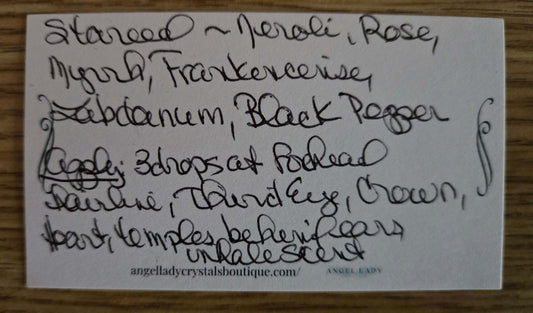 Stareed ~ Neroli, Rose,
Myrrh, Frankencense,
Labdanum, Black Pepper
Apply: 3drops at Forhead
hairline, Third Eye, Crown,
heart, temples, behind ears,
inhale scent
angelladycrystalsboutique.com/ ANGEL LADY